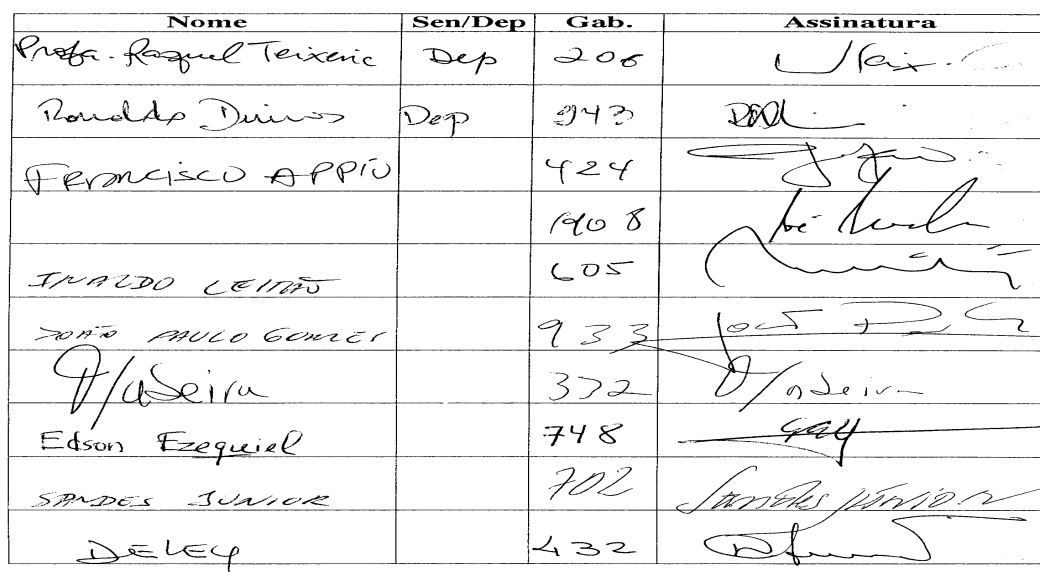 Nome Sen/Dep Gab. Assinatura
Profa. Raquel Teixeira Dep 206
Ronaldo Dimas Dep 943
Francisco Appio 424
908
INALDO LEITÃO 605
JOÃO PAULO GOMES 933
Madeira 332 Madeira
Edson Ezequiel 748
SANDES JUNIOR 702 Sandes Júnior
DELEY 432